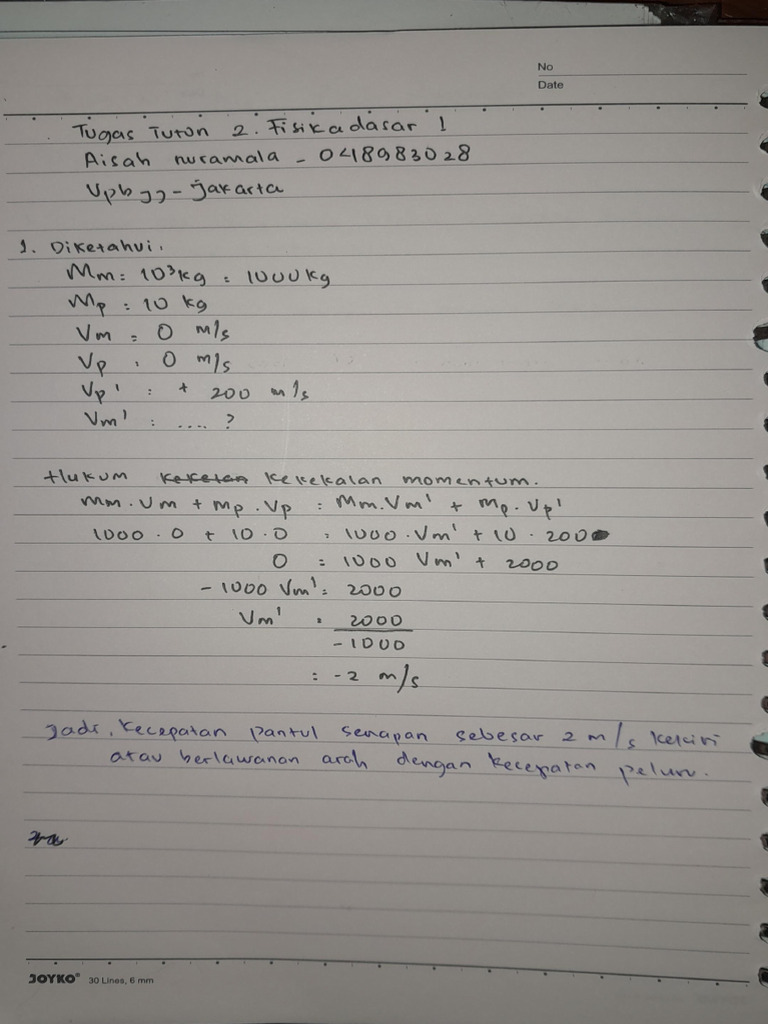 No
Date
Tugas Tuton 2. Fisika dasar 1
Aisah nuramala - 048983028
Upbjj - jakarta
1. Diketahui.
Mm = 10³ kg = 1000 kg
Mp = 10 kg
Vm = 0 m/s
Vp = 0 m/s
Vp' = + 200 m/s
Vm' = .... ?
Hukum keketan kekekalan momentum.
Mm. Vm + Mp . Vp = Mm. Vm' + Mp. Vp'
1000 . 0 + 10 . 0 = 1000 . Vm' + 10 . 200
0 = 1000 Vm' + 2000
- 1000 Vm' = 2000
Vm' = 2000
-1000
= -2 m/s
Jadi, kecepatan pantul senapan sebesar 2 m/s kekiri
atau berlawanan arah dengan kecepatan peluru.
JOYKO® 30 Lines, 6 mm